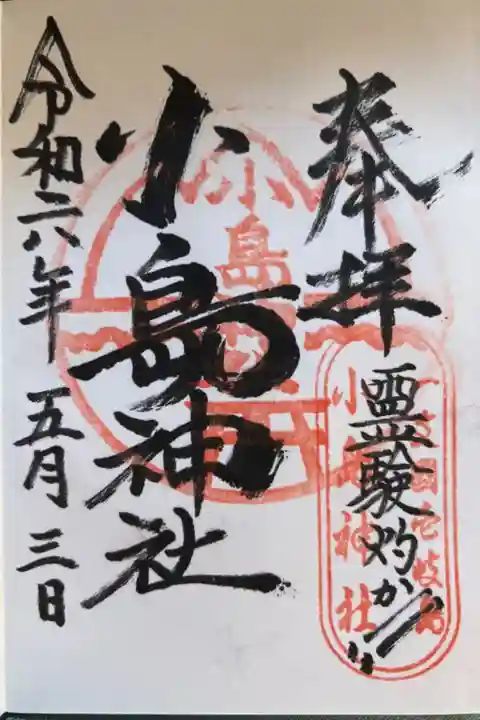 奉拝
霊験灼か
小島神社
令和六年 五月 三日
小島
小島神社
壱岐島